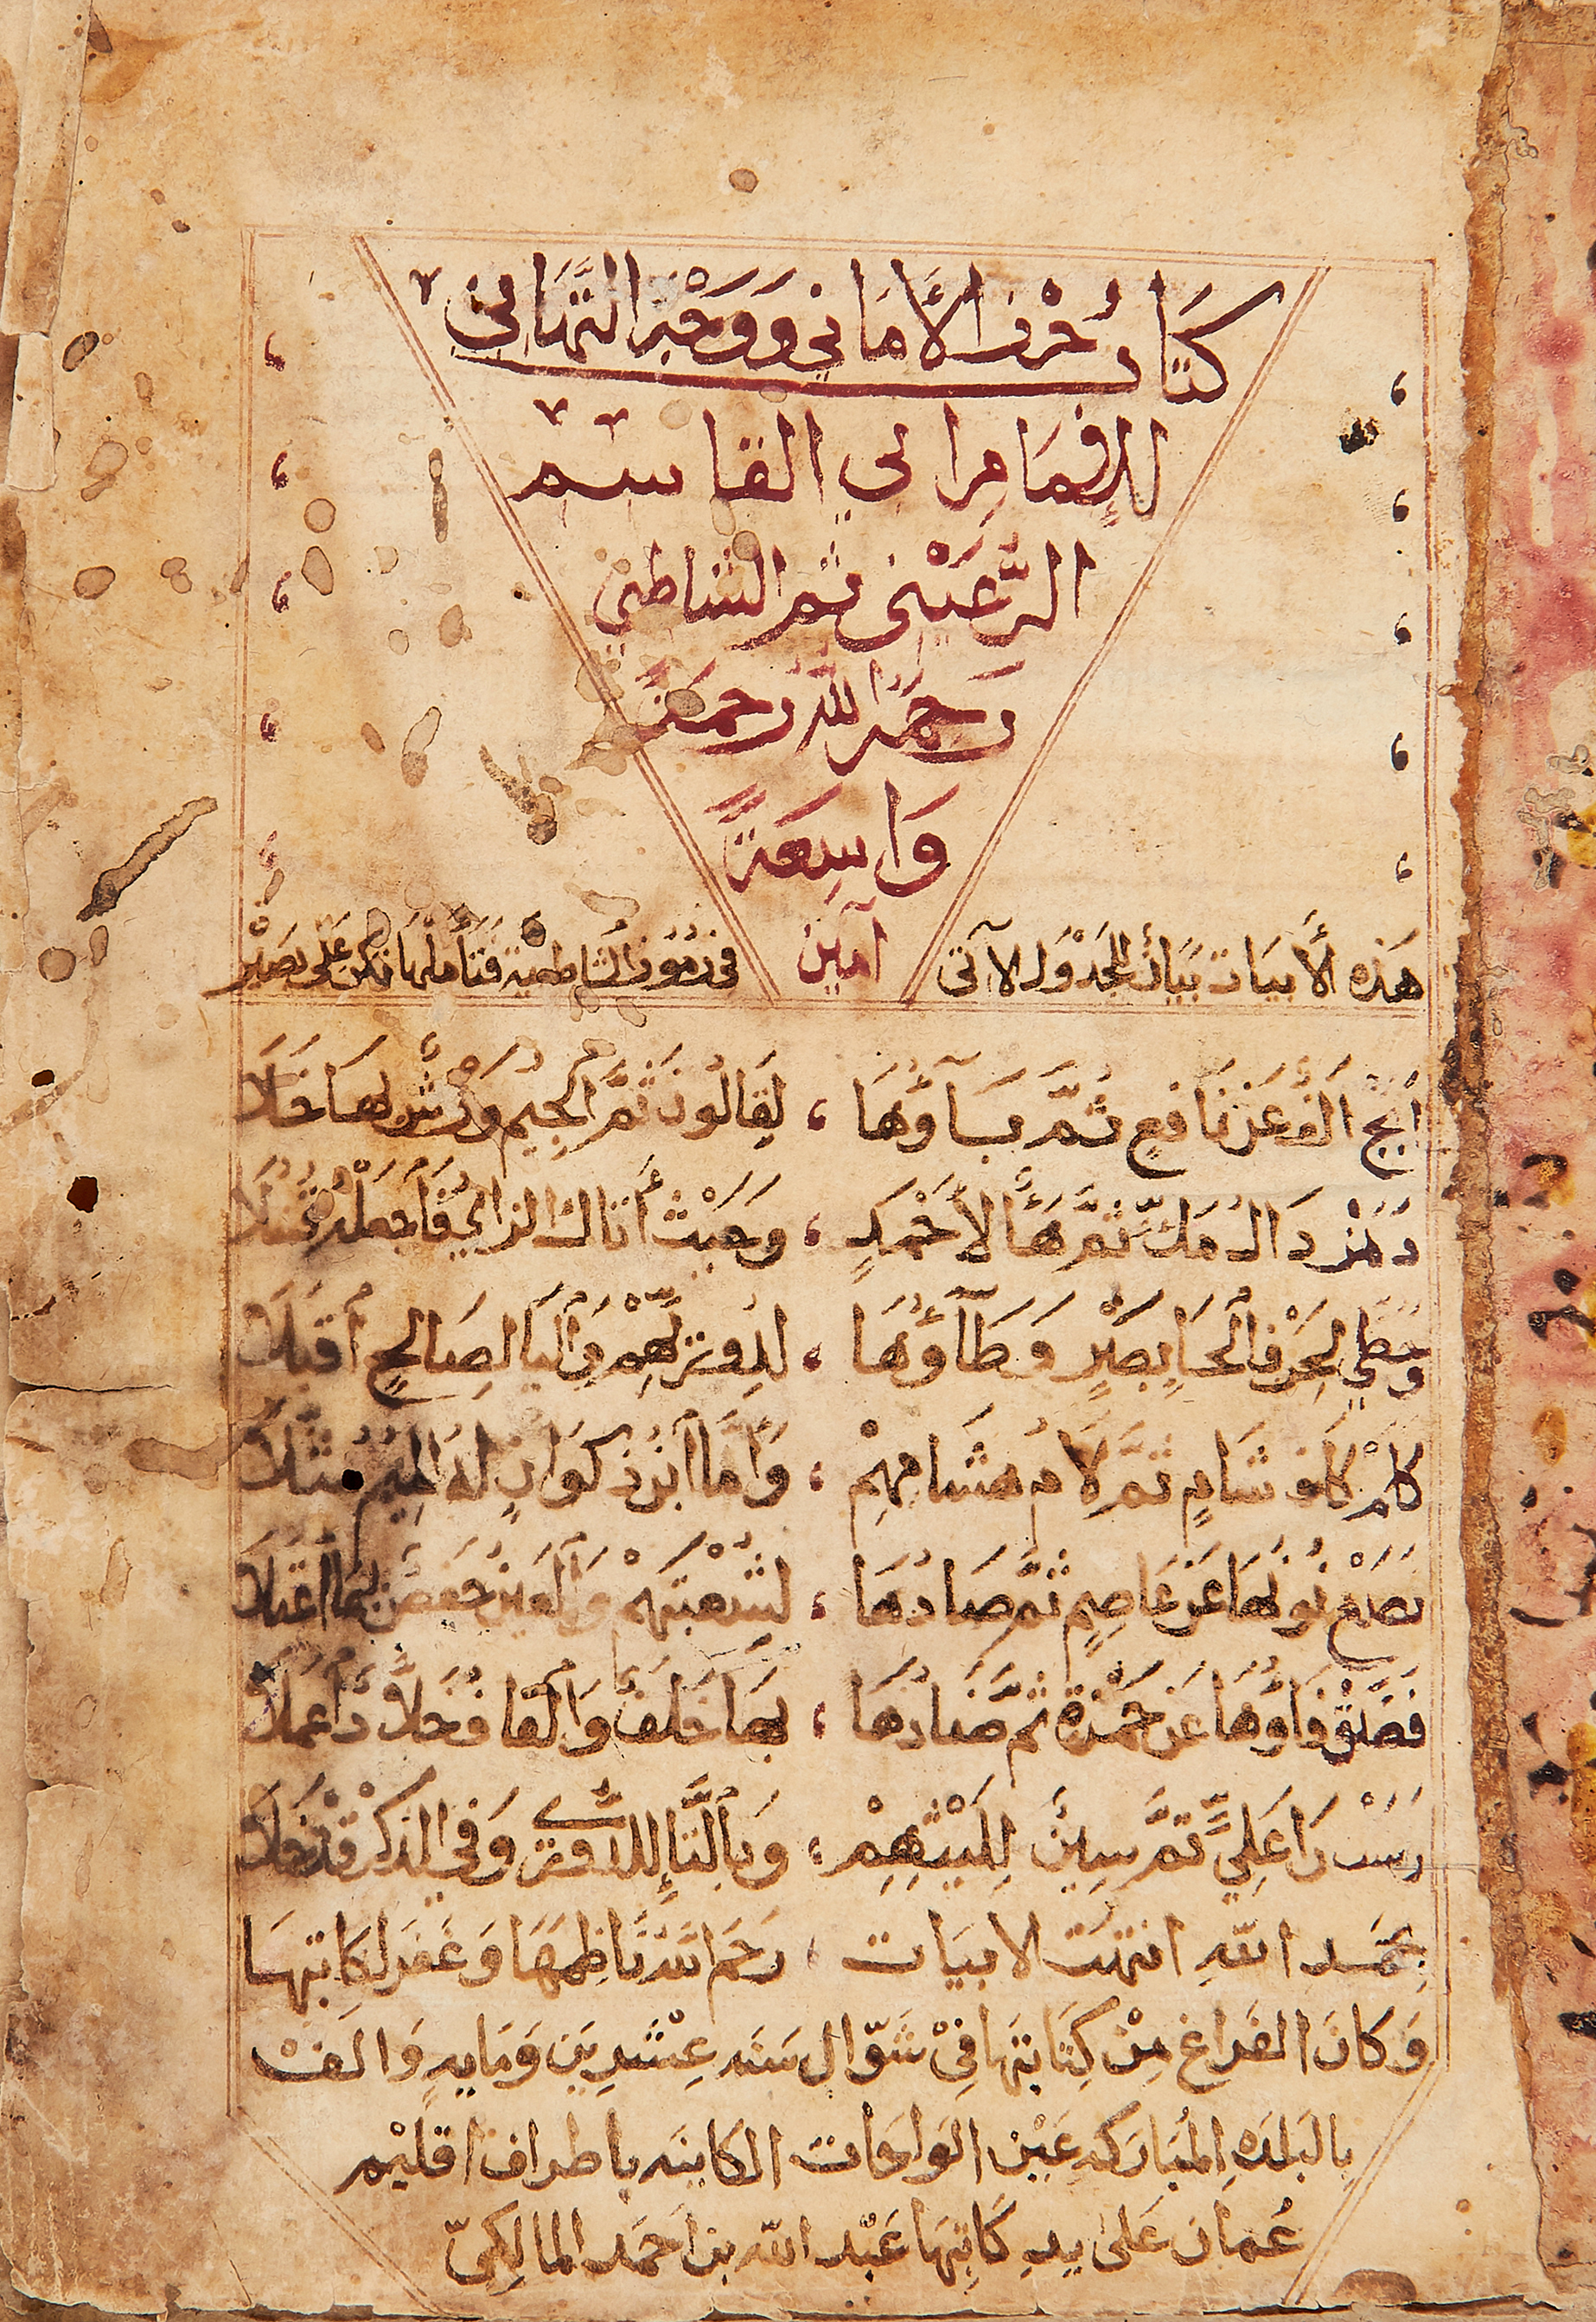 كتاب حرز الأماني ووجه التهاني
للإمام أبي القاسم
الرعيني ثم الشاطبي
رحمه الله رحمة
واسعة
آمين
هذه الأبيات بيان الجدول الآتي في رموز الشاطبية فتأملها تكن على بصير
أبج الف عن نافع ثم باؤها ، لقالون ثم الجيم ورش لها خلا
دهز دال مك ثم هاء لأحمد ، وحيث أتاك الزاي فاجعله قنبلا
وحطي الحرف الحا بصر وطاؤها ، لدورٍ لهم واليا لصالح أقبلا
كلم كاف شام ثم لام هشامهم ، وأما ابن ذكوان له الميم مثلا
نصع نونها عن عاصم ثم صادها ، لشعبتهم والعين حفص بها اعتلا
فضق فاؤها عن حمزة ثم ضادها ، بها خلف والقاف خلاد أعملا
رست را علي ثم سين لليثهم ، وبالتا إلى الدوري وفي الذكر قد خلا
بحمد الله انتهت لابيات ، رحم الله ناظمها وغفر لكاتبها
وَكَانَ الفَراغ مِنْ كِتَابتهَا فِي شَوّال سَنَه عِشْرِيَن وَمَايهِ وَالَفْ
بالبَلدَهِ المُبارَكه عَيْن الوَاحَات الكاينَه باطراف اقليْم
عُمان عَلى يدِ كَاتِبهَا عَبْد اللّه بن احَمَد المالِكِيّ